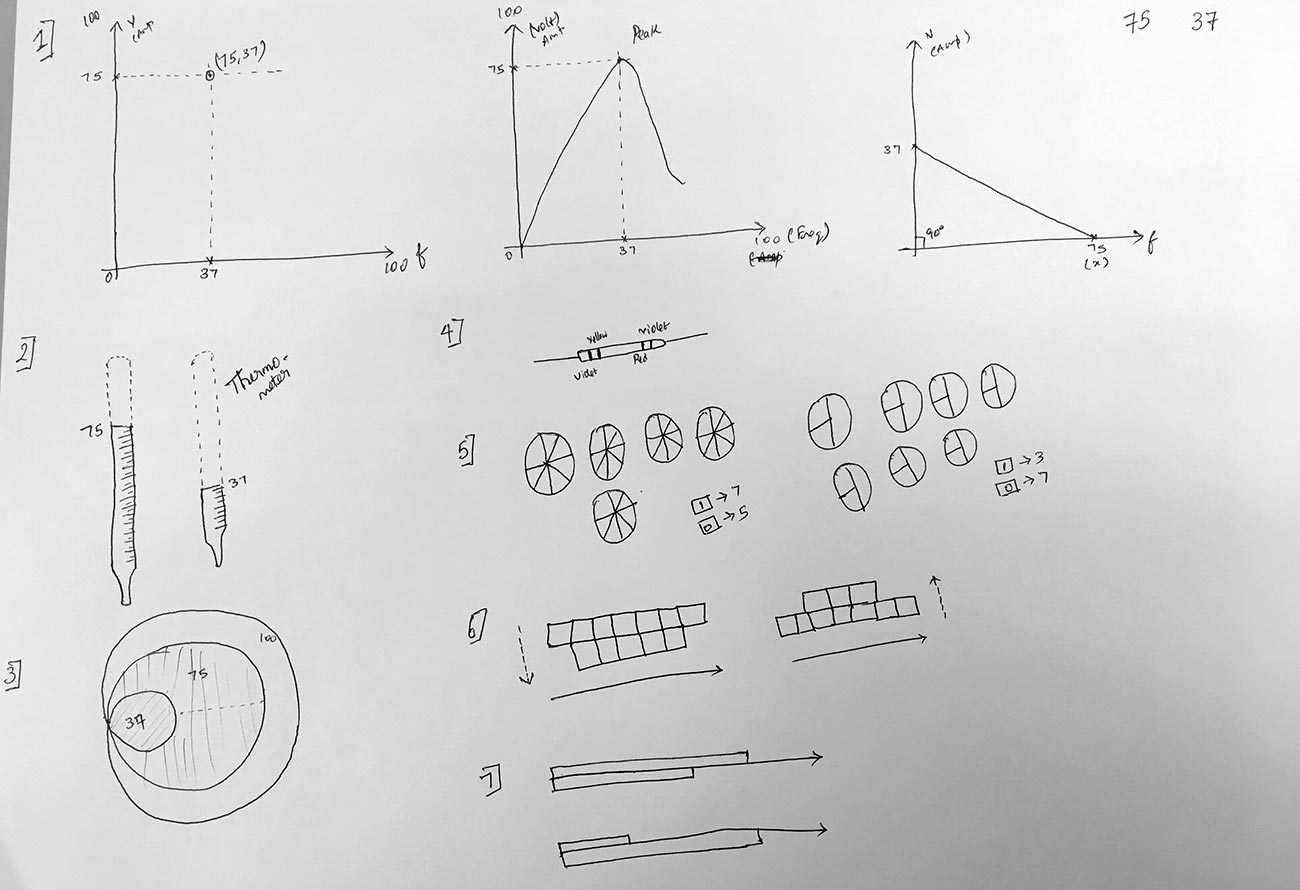 75 37
1]
100
Y
(Amp
75
(75,37)
0
37
100 f
100
(Volt)
Amt
Peak
75
0
37
100 (Freq)
N
(Amp)
37
90°
75
(x)
f
2]
Thermo-
meter
75
37
3]
100
75
37
4]
Yellow
violet
violet
Red
5]
1 → 7
0 → 5
1 → 3
0 → 7
6]
7]